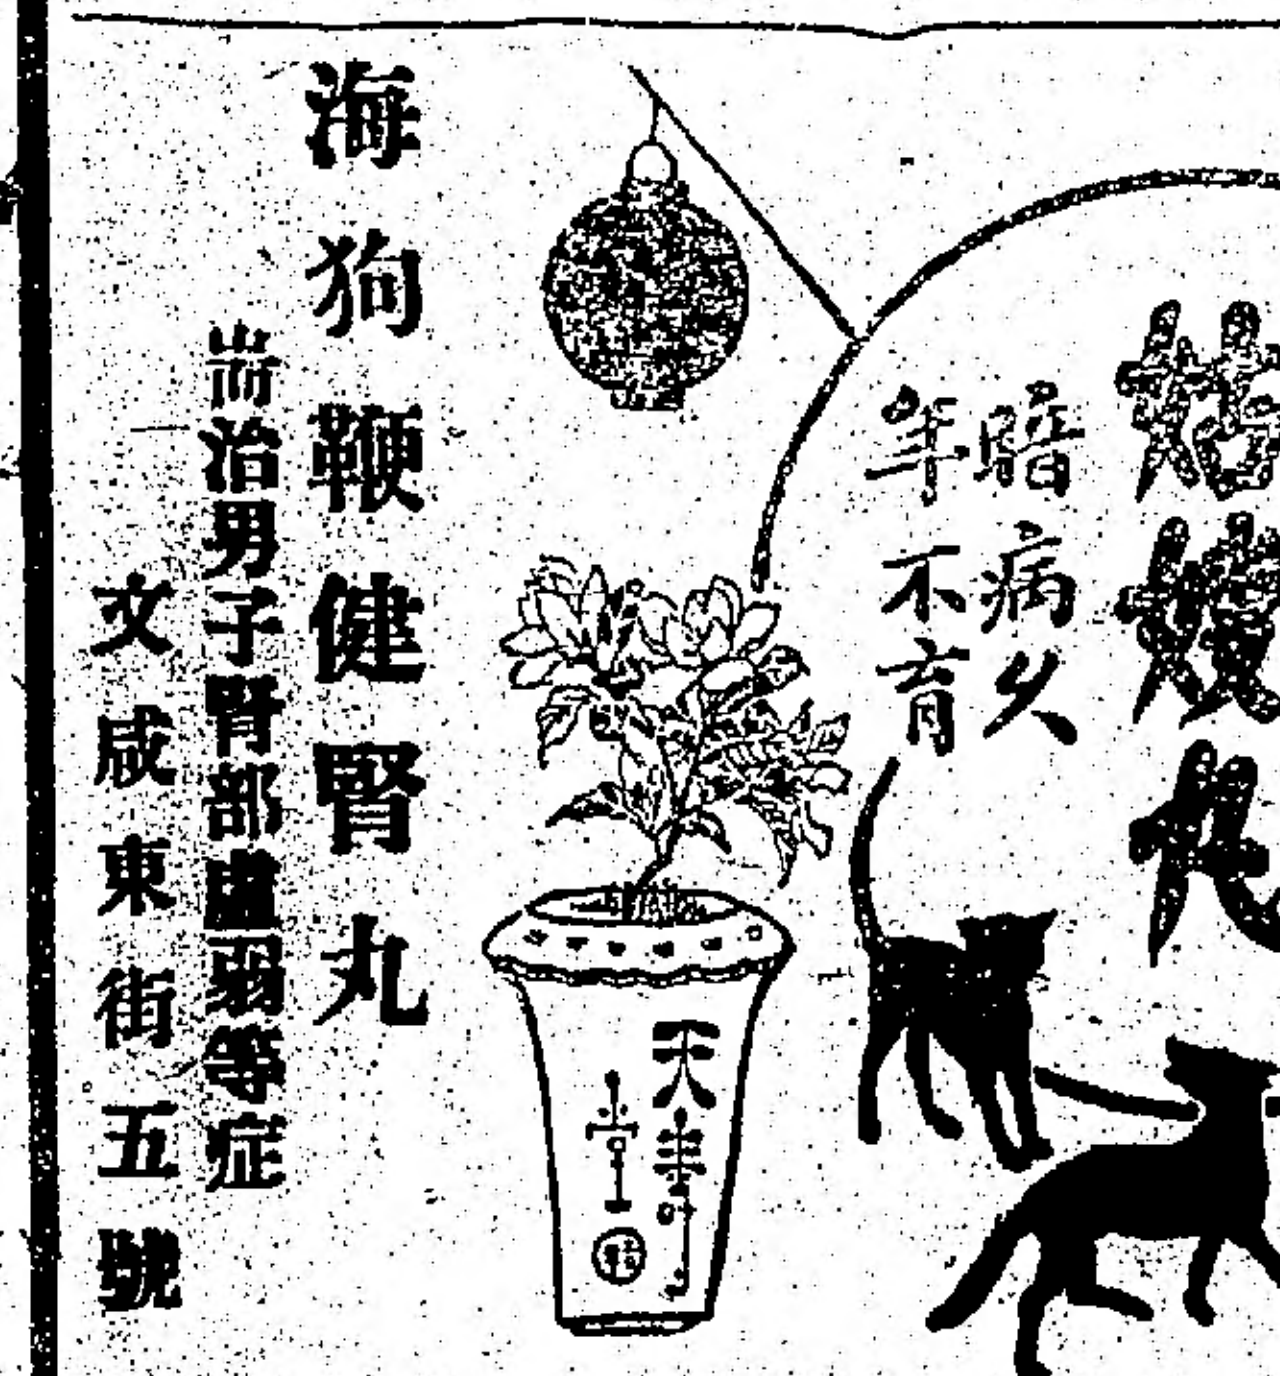 姑嫂丸
暗病久
年不育
海狗鞭健腎丸
耑治男子腎部虛弱等症
文咸東街五號